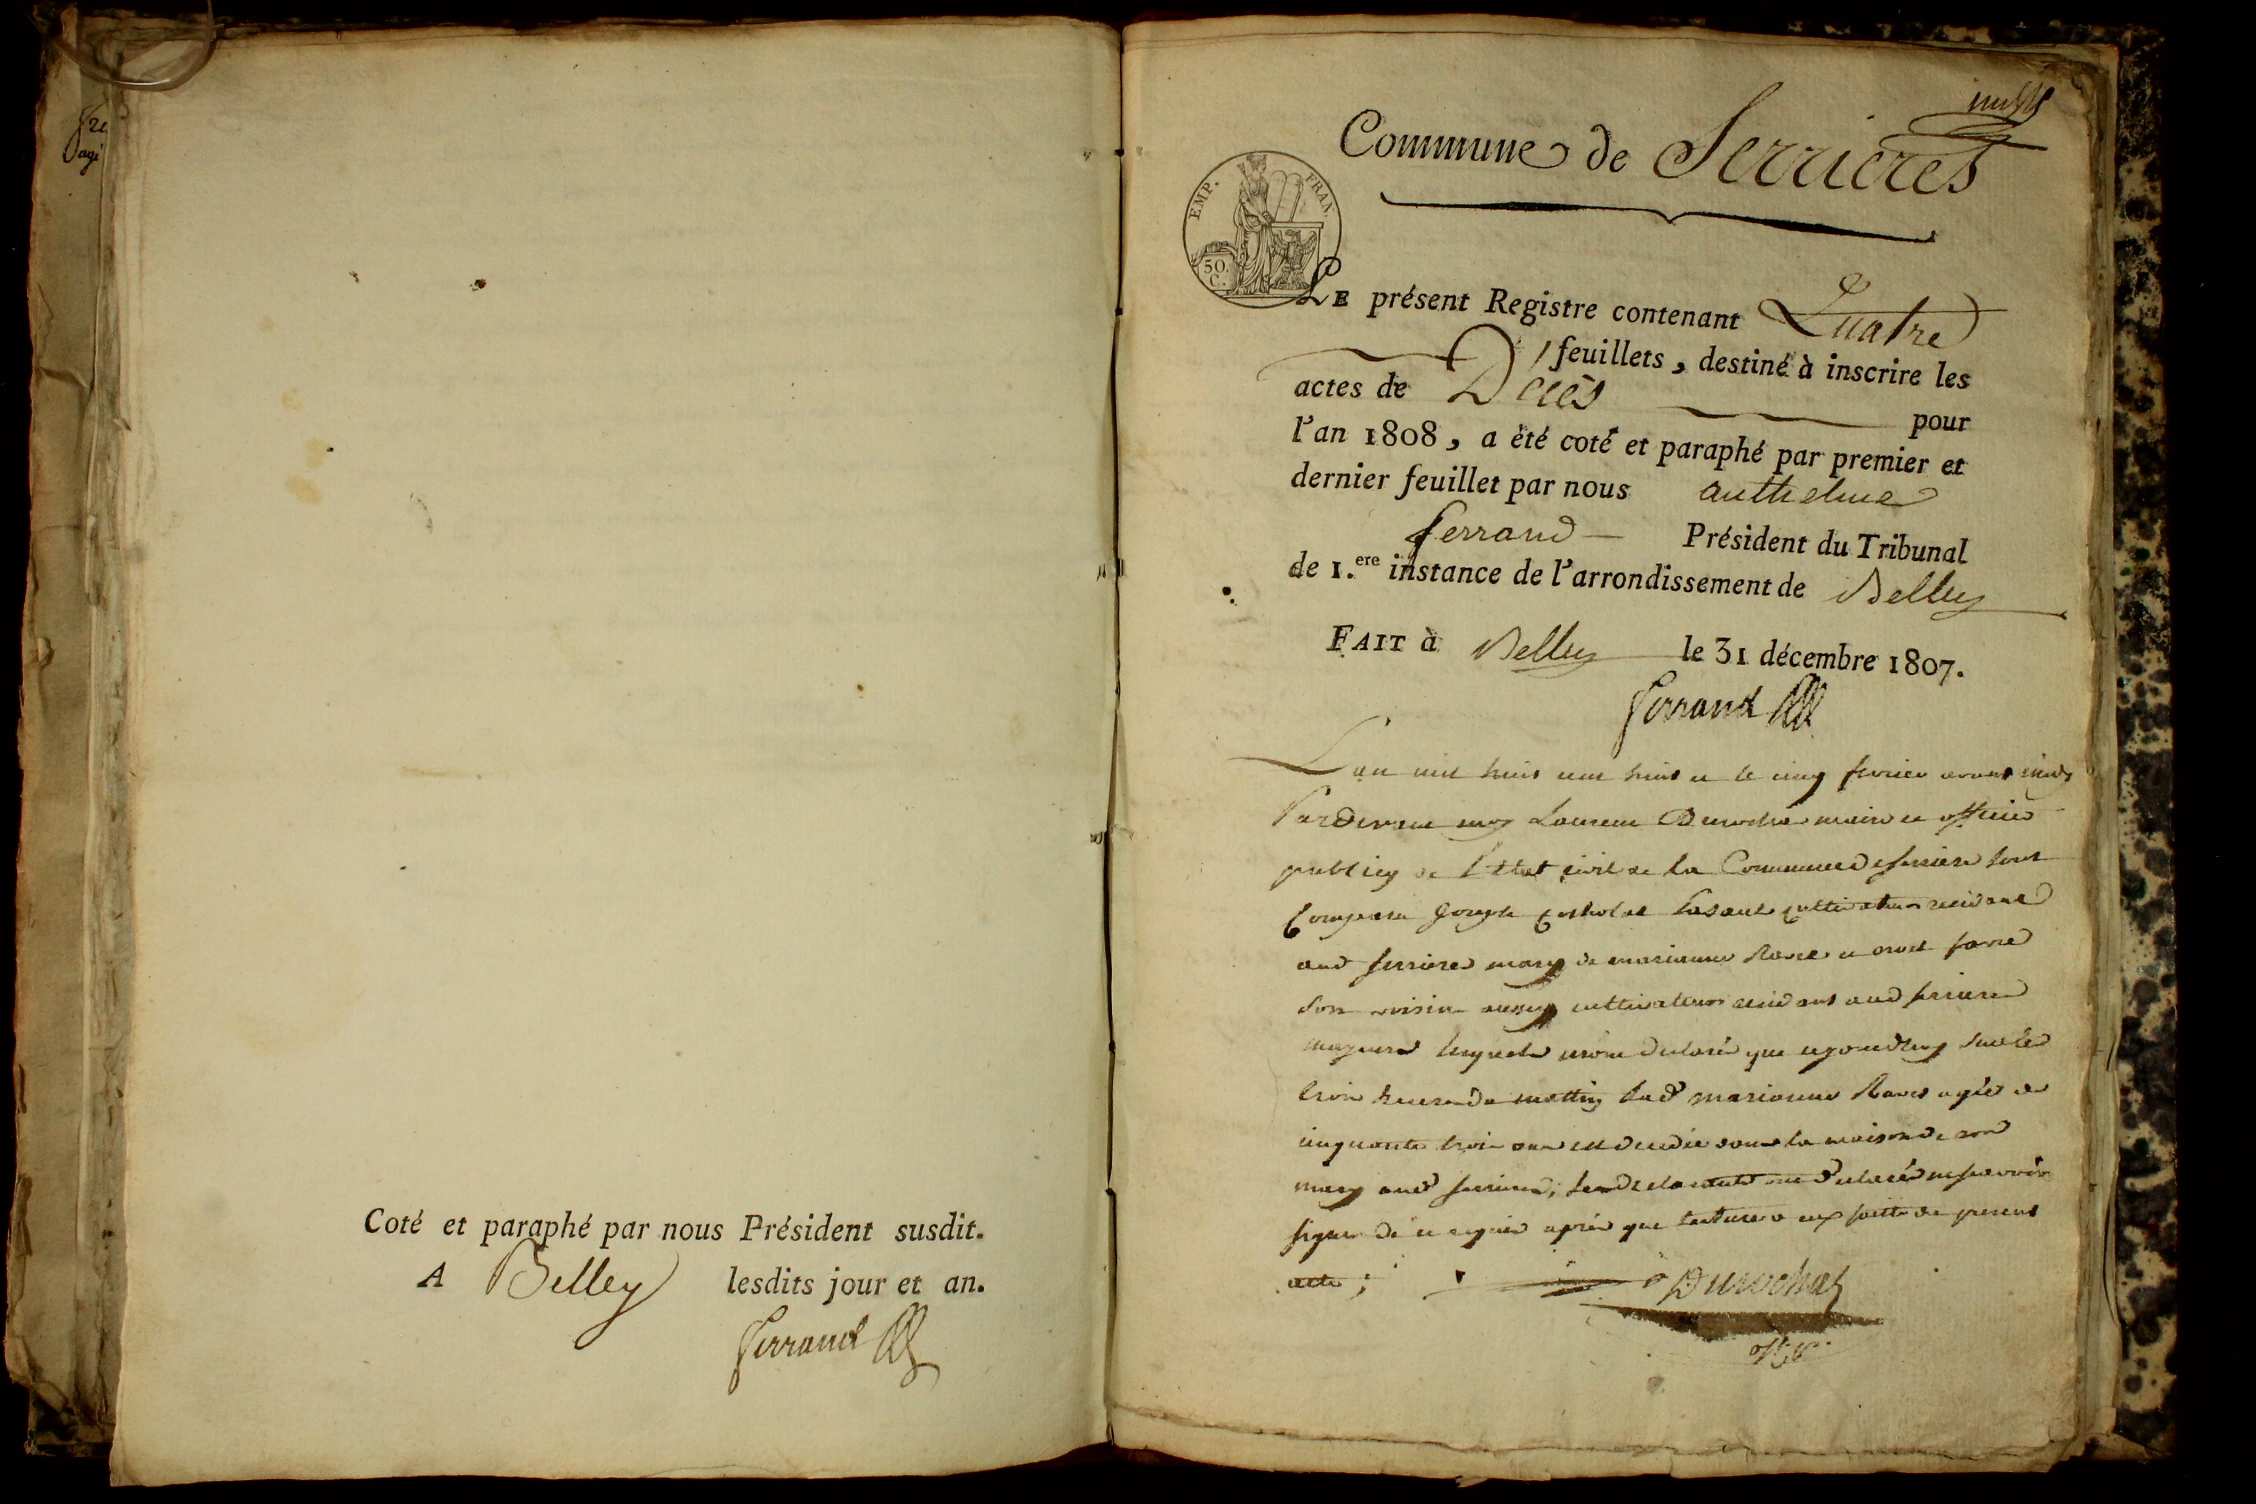 Coté et paraphé par nous Président susdit.
A Belley lesdits jour et an.
Ferrand
Commune de Serrieres
EMP. FRAN.
50. C.
LE présent Registre contenant Quatre
feuillets, destiné à inscrire les
actes de Décès pour
l'an 1808, a été coté et paraphé par premier et
dernier feuillet par nous anthelme
ferrand Président du Tribunal
de 1.ere instance de l'arrondissement de Belley
FAIT à Belley le 31 décembre 1807.
Ferrand
Lan mil huit cent huit et le cinq fevrier avant midy
Pardevant moy Laurent Durochat maire et officier
publicq de l'Etat civil de la Commune de serriere sont
Comparu Joseph cultivateur residant
aud serriere mary de marianne et favre
son voisin aussy cultivateur residant aud serriere
lesquels mont declaré que cejourdhuy sur les
trois heures du mattin lad marianne agée de
cinquante trois ans est decedée dans la maison de son
mary aud serriere, les declarants ont declaré ne scavoir
signer de ce requis après que lecture a eux faitte du present
acte;
Durochat